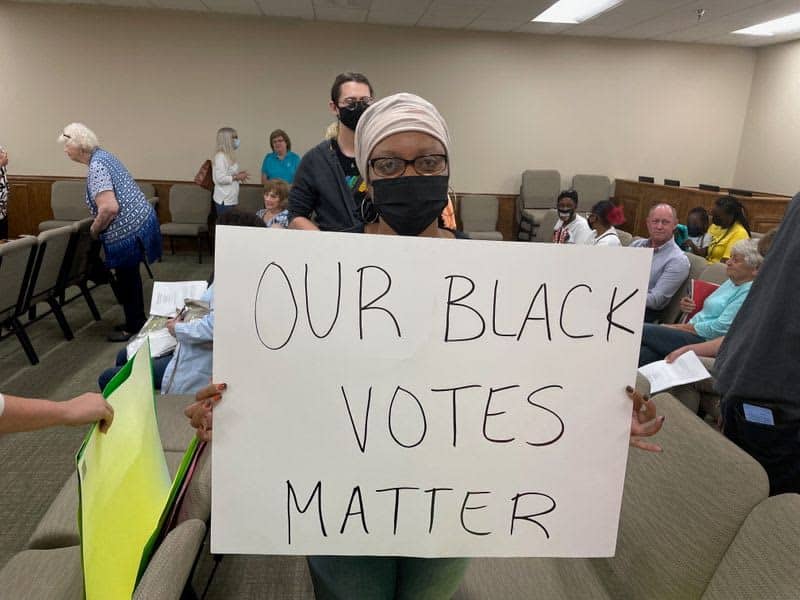 OUR BLACK
VOTES
MATTER